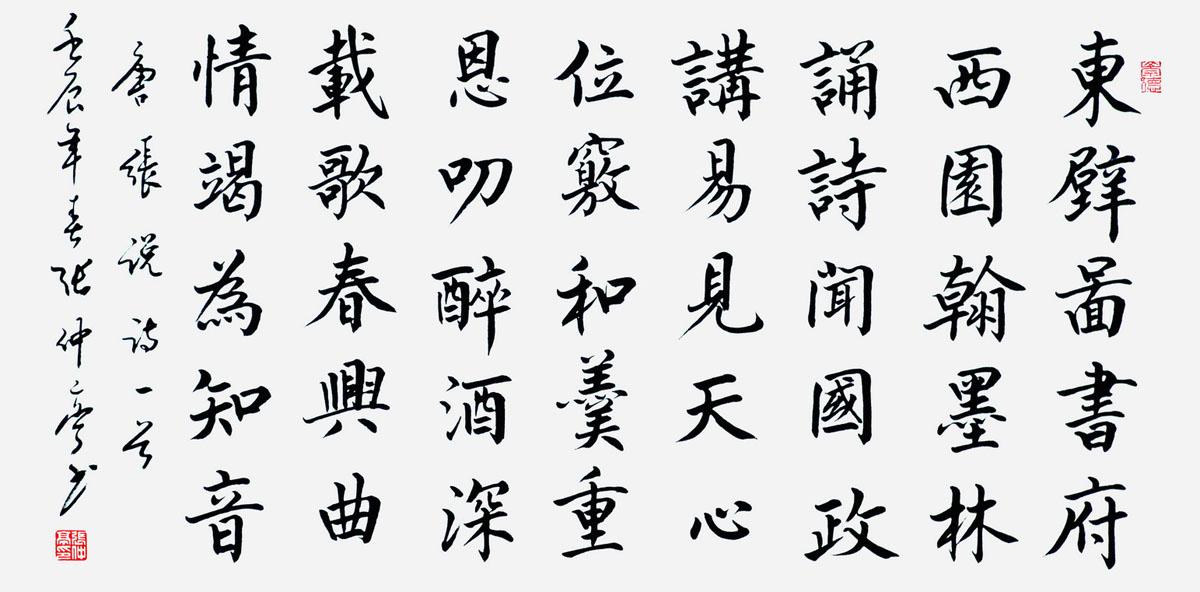 崇德
東壁圖書府
西園翰墨林
誦詩聞國政
講易見天心
位竅和羹重
恩叨醉酒深
載歌春興曲
情竭為知音
唐張说诗一首
壬辰年春张仲亭书
張仲亭印